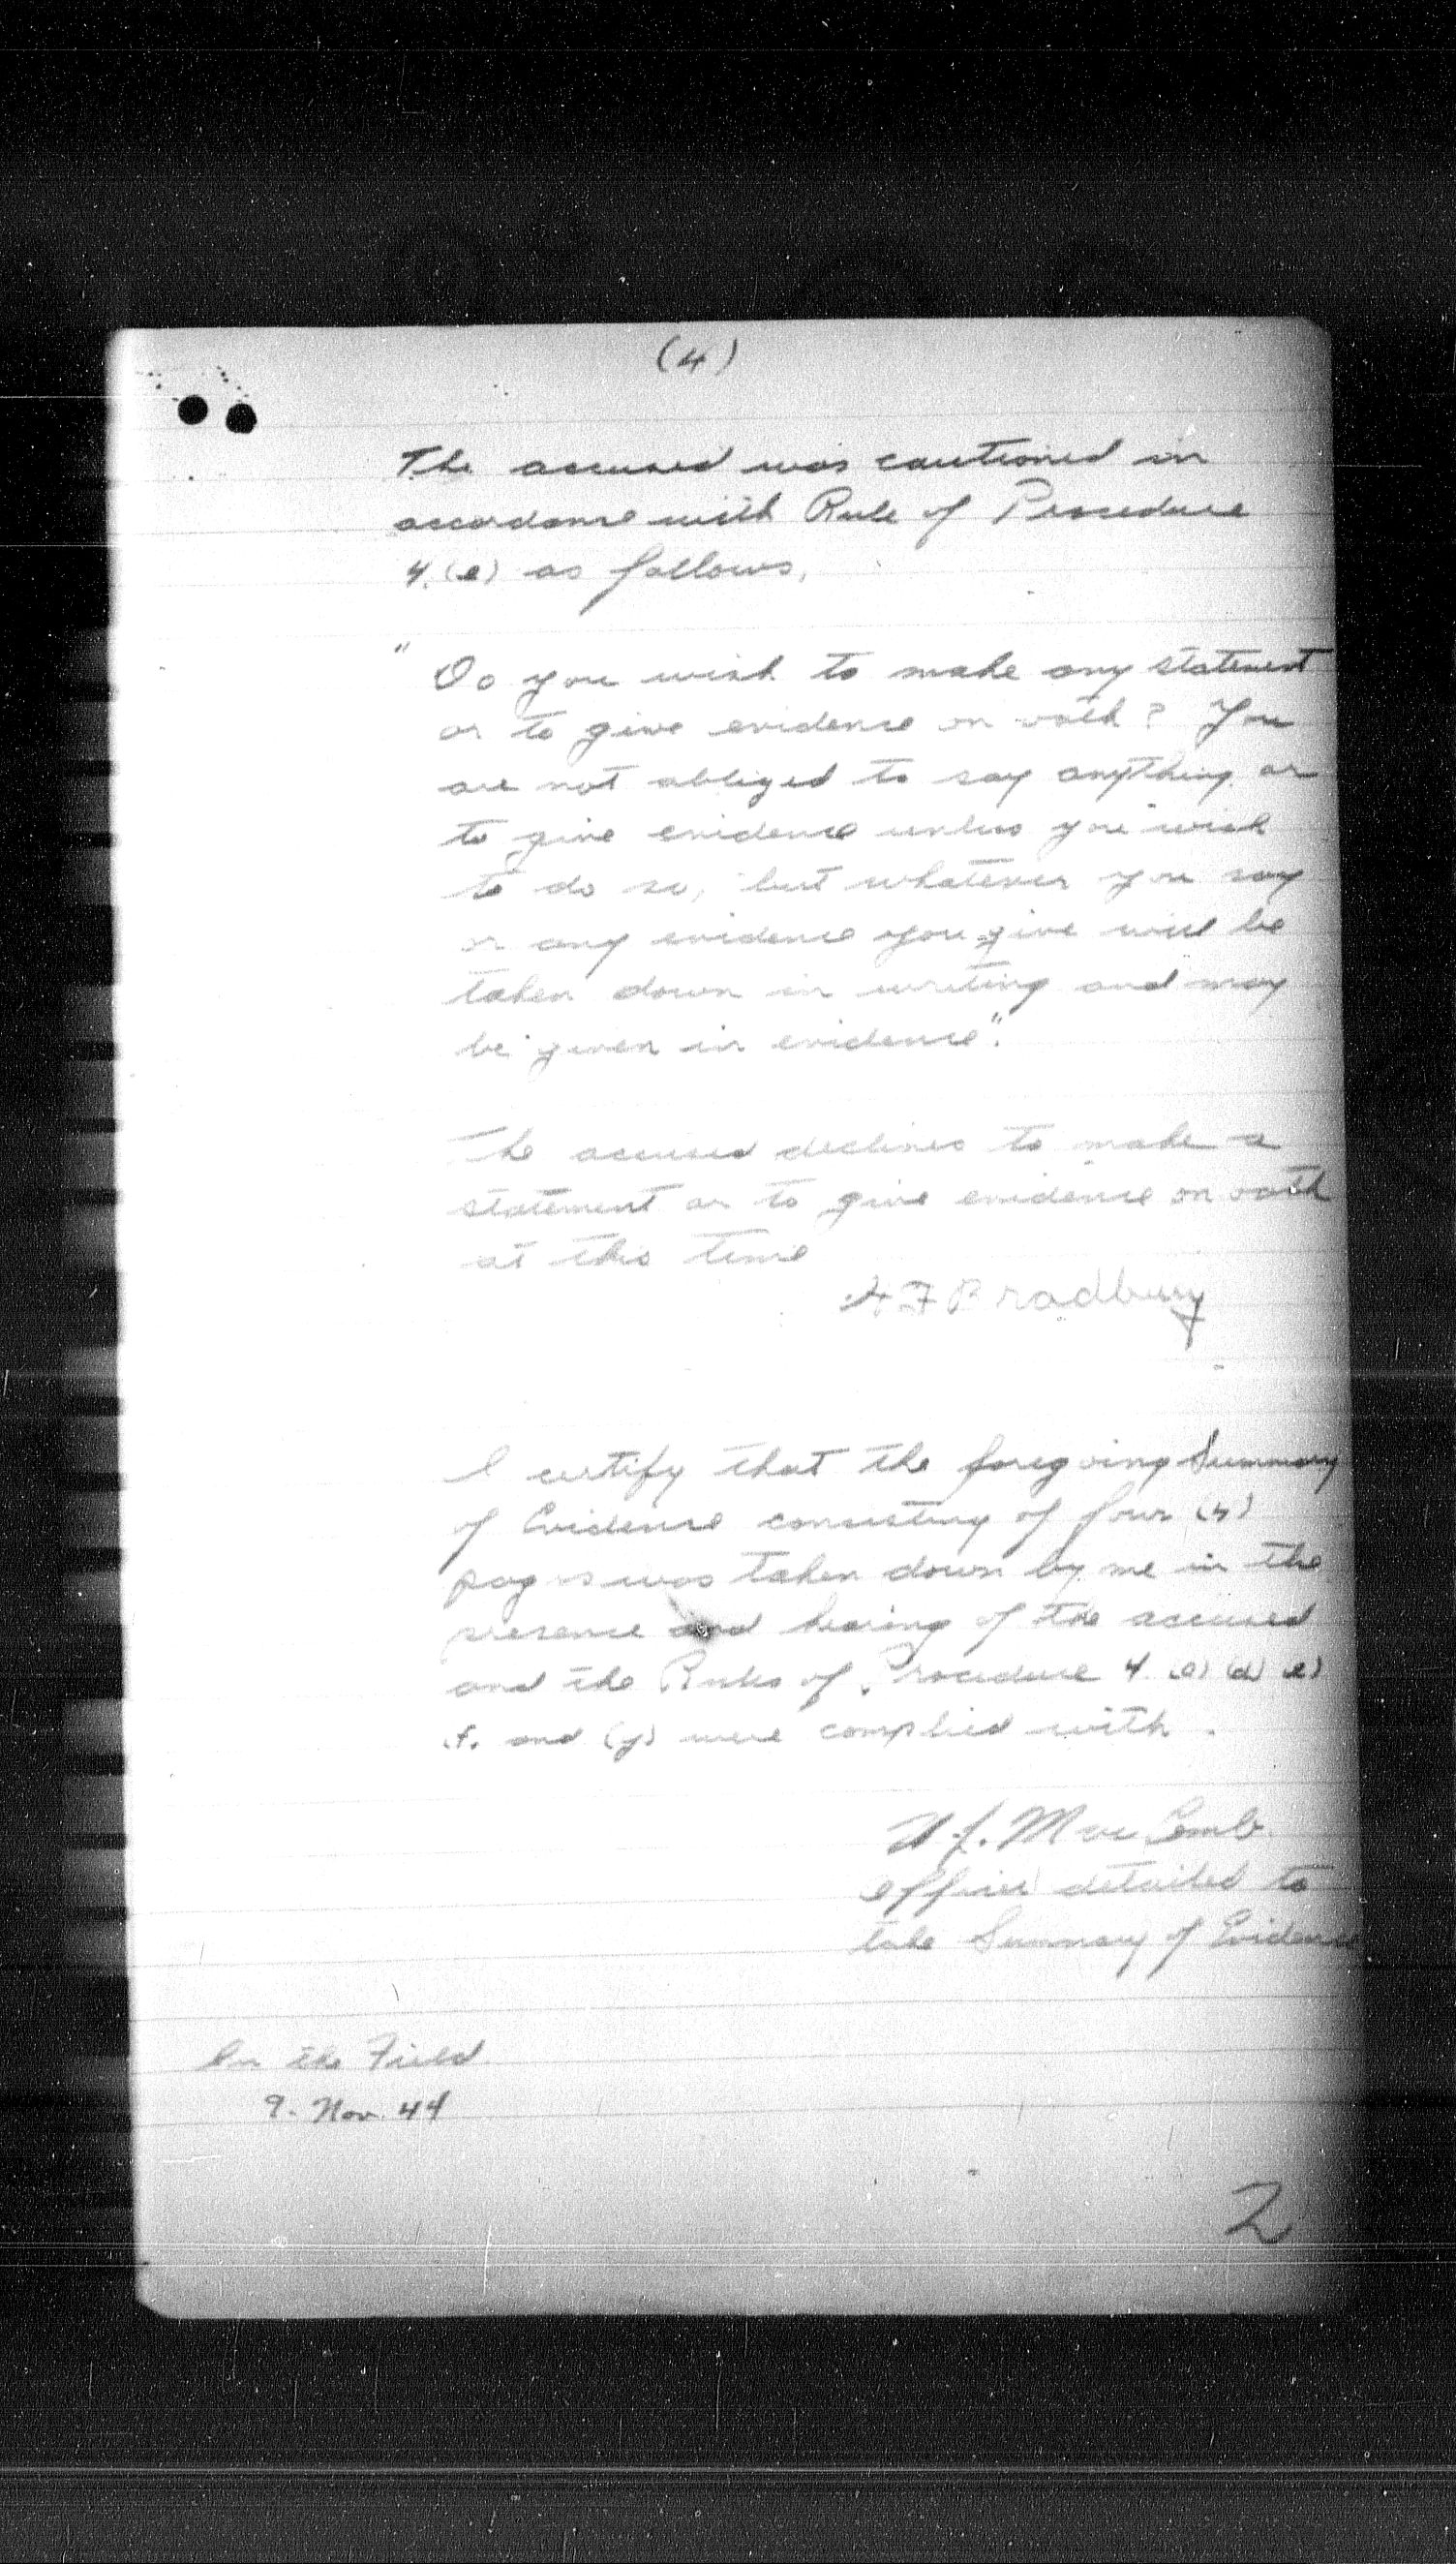 (4)
The accused was cautioned in
accordance with Rule of Procedure
4.(e) as follows,
" Do you wish to make any statement
or to give evidence on oath? You
are not obliged to say anything or
to give evidence unless you wish
to do so, but whatever you say
or any evidence you give will be
taken down in writing and may
be given in evidence".
The accused declines to make a
statement or to give evidence on oath
at this time
F Bradbury
I certify that the foregoing Summary
of Evidence consisting of four (4)
pages was taken down by me in the
presence and hearing of the accused
and the Rules of Procedure 4 (c) (d) (e)
(f) and (g) were complied with.
Officer detailed to
take Summary of Evidence
In the Field
9. Nov. 44
2